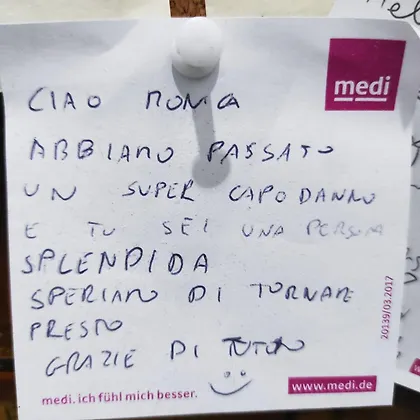 medi
CIAO MONICA
ABBIAMO PASSATO
UN SUPER CAPODANNO
E TU SEI UNA PERSONA
SPLENDIDA
SPERIAMO DI TORNARE
PRESTO
GRAZIE DI TUTTO
20139/03.2017
medi. ich fühl mich besser.
www.medi.de